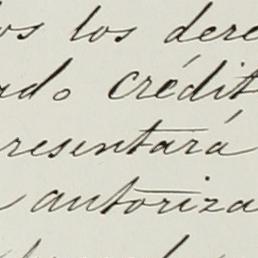 os los dere
rado crédit
resentará
autoriza